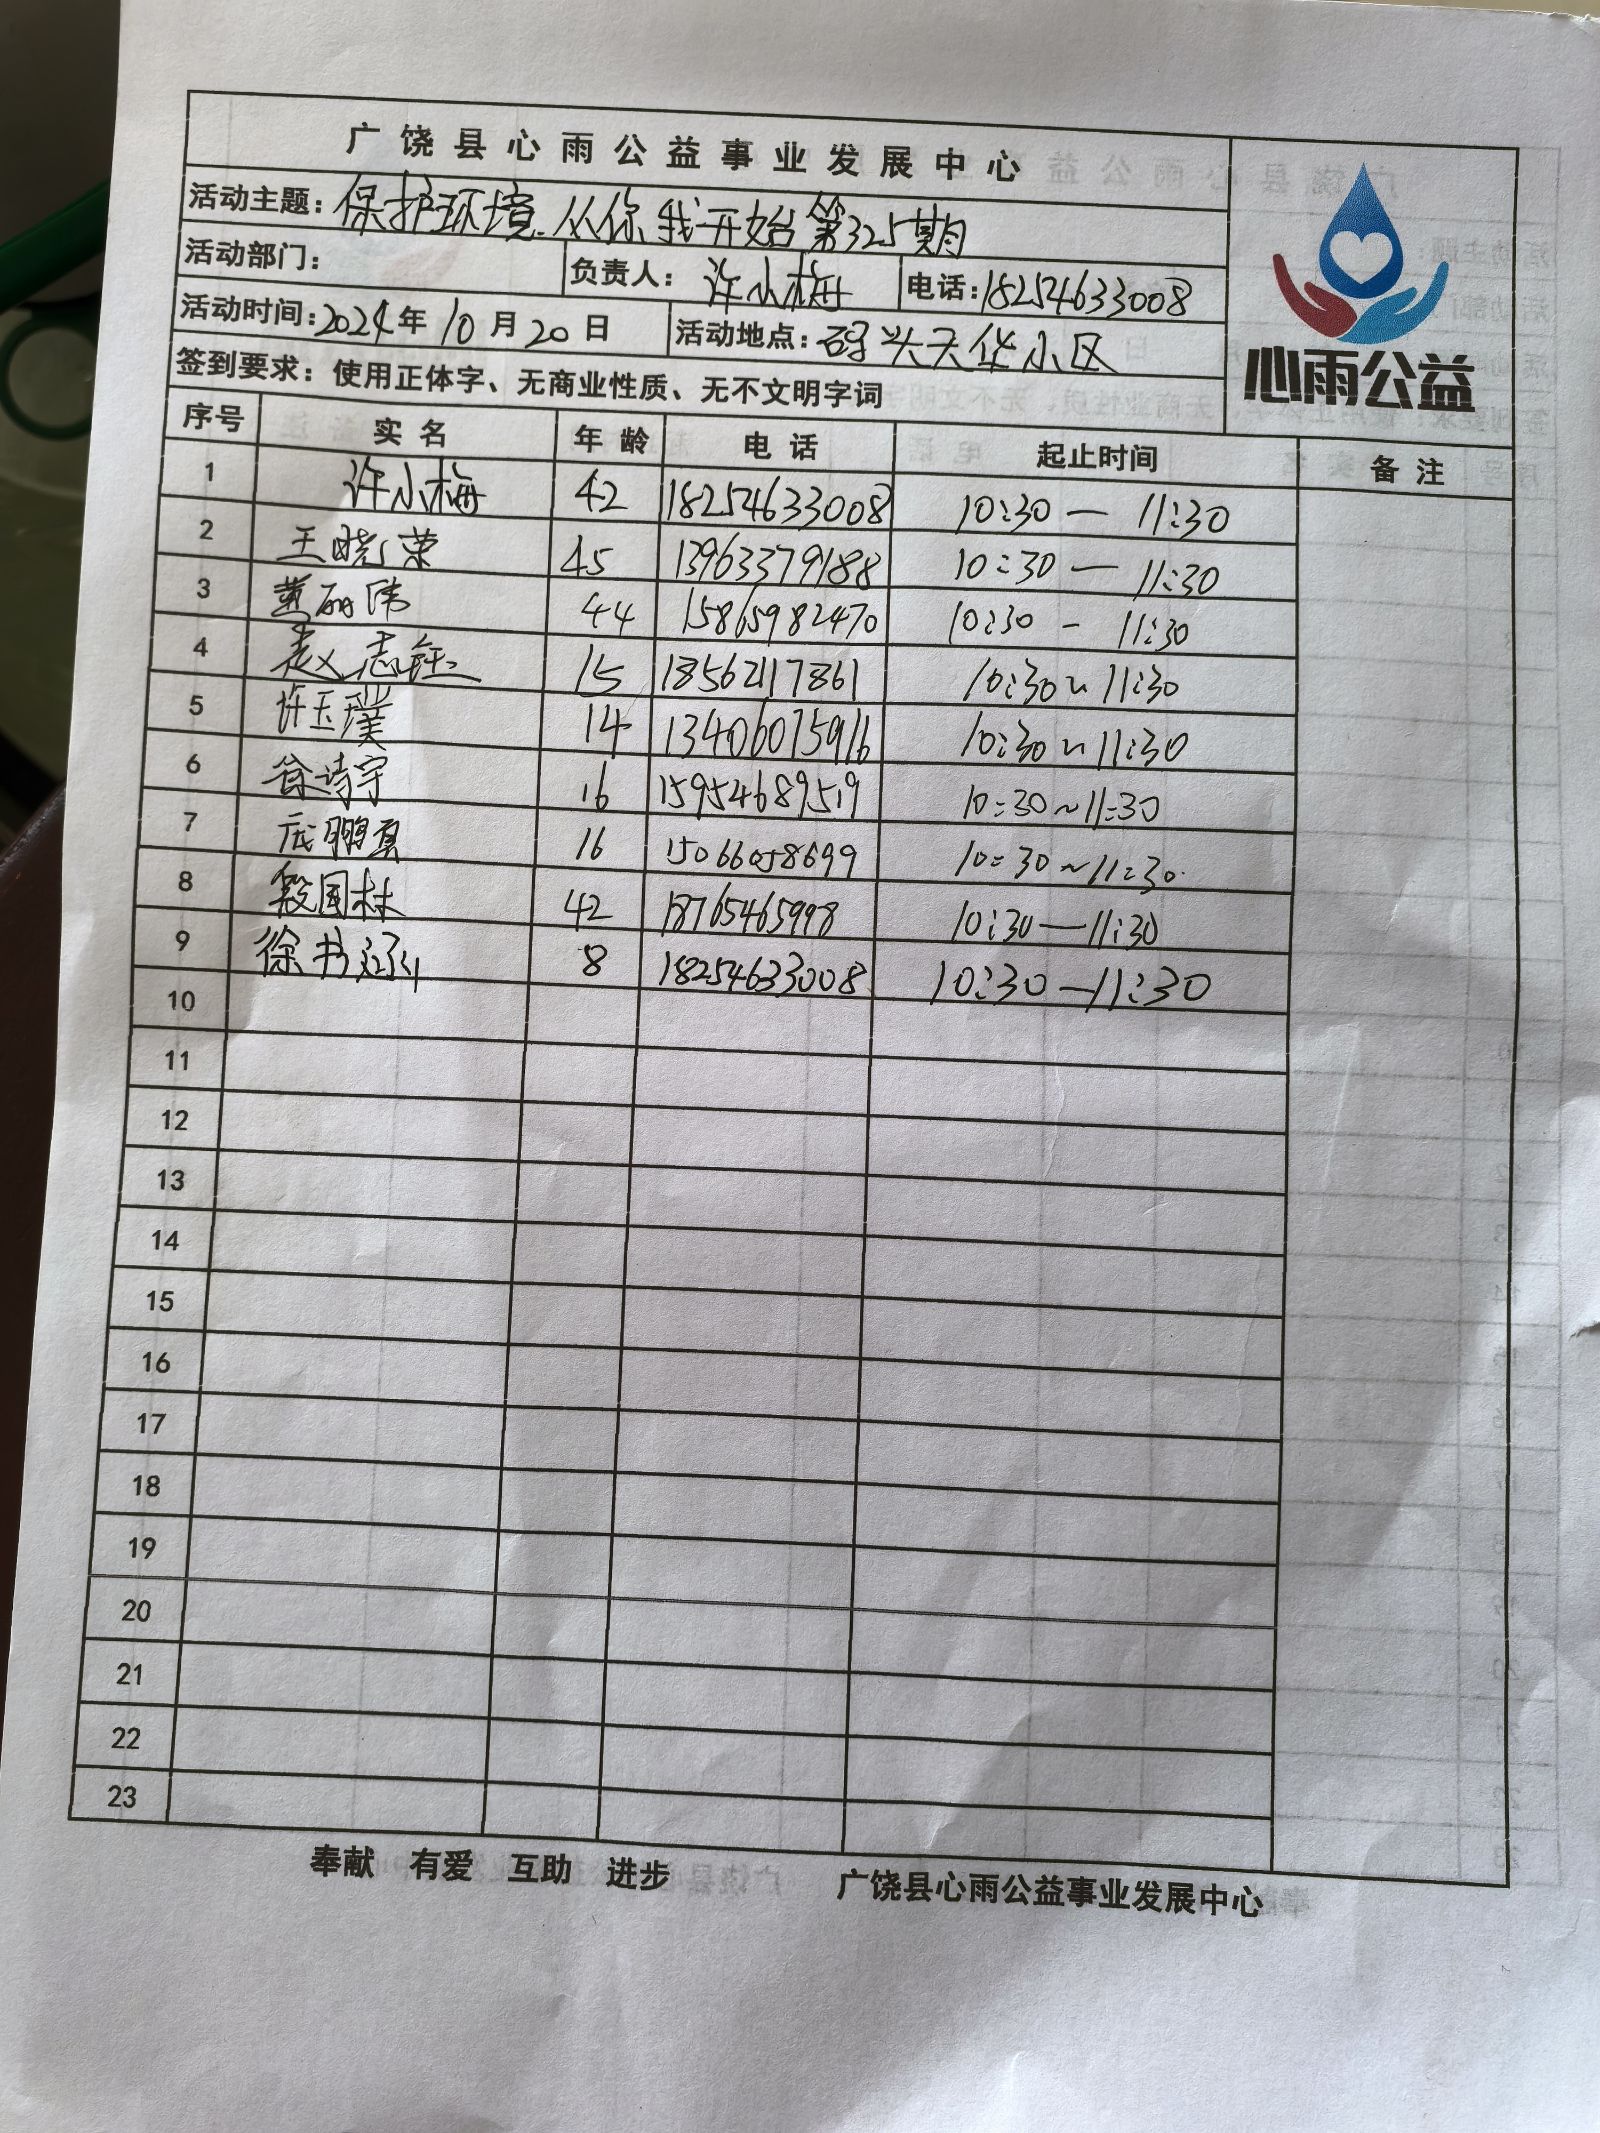 广饶县心雨公益事业发展中心
活动主题：保护环境.从你我开始第325期
活动部门： 负责人：许小梅 电话：18254633008
活动时间：2024年10月20日 活动地点：码头天华小区
签到要求：使用正体字、无商业性质、无不文明字词
心雨公益
序号 实名 年龄 电话 起止时间 备注
1 许小梅 42 18254633008 10:30—11:30
2 王晓荣 45 13963379188 10:30—11:30
3 黄丽伟 44 15865982470 10:30-11:30
4 赵志钰 15 18562117861 10:30~11:30
5 许玉璞 14 13406075916 10:30~11:30
6 徐诗宇 16 15954689519 10:30~11:30
7 鹏真 16 15066058699 10:30~11:30
8 段国林 42 18765465998 10:30—11:30
9 徐书 8 18254633008 10:30—11:30
10
11
12
13
14
15
16
17
18
19
20
21
22
23
奉献 有爱 互助 进步 广饶县心雨公益事业发展中心